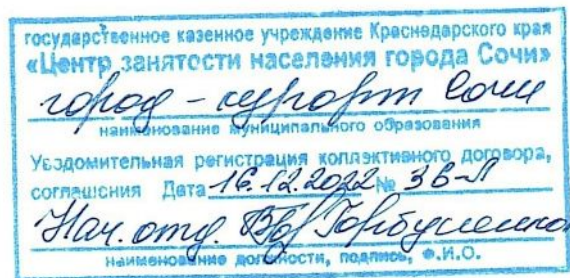 государственное казенное учреждение Краснодарского края
«Центр занятости населения города Сочи»
город - курорт Сочи
наименование муниципального образования
Уведомительная регистрация коллективного договора,
соглашения Дата 16.12.2022 № 36-Л
Нач. отд. Горбуненко
наименование должности, подпись, Ф.И.О.